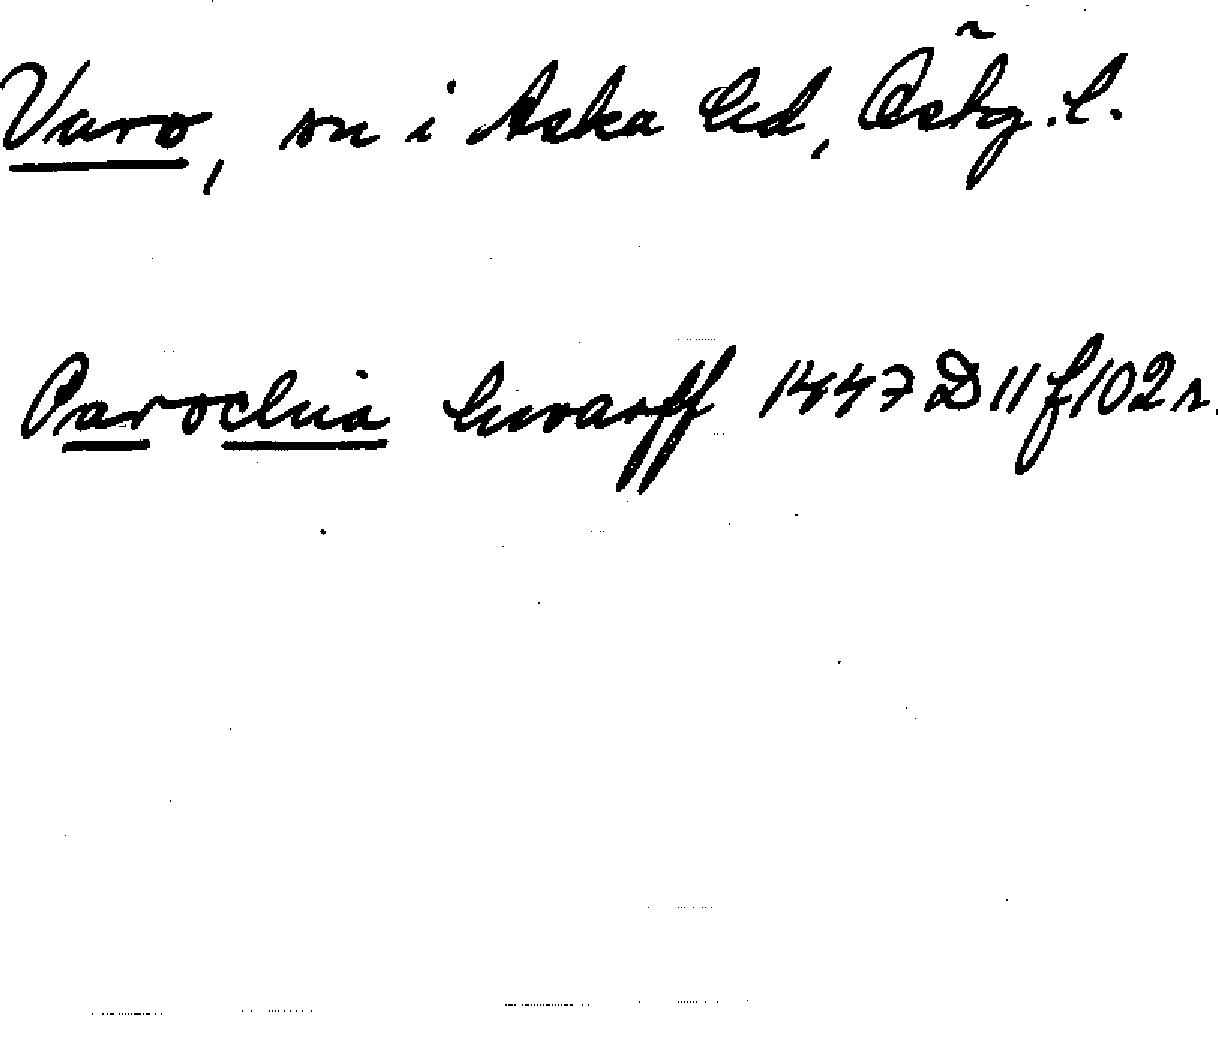 Varv, sn i Aska hd, Östg.l.
Parochia hwarff 1447 D 11 f 102 r.